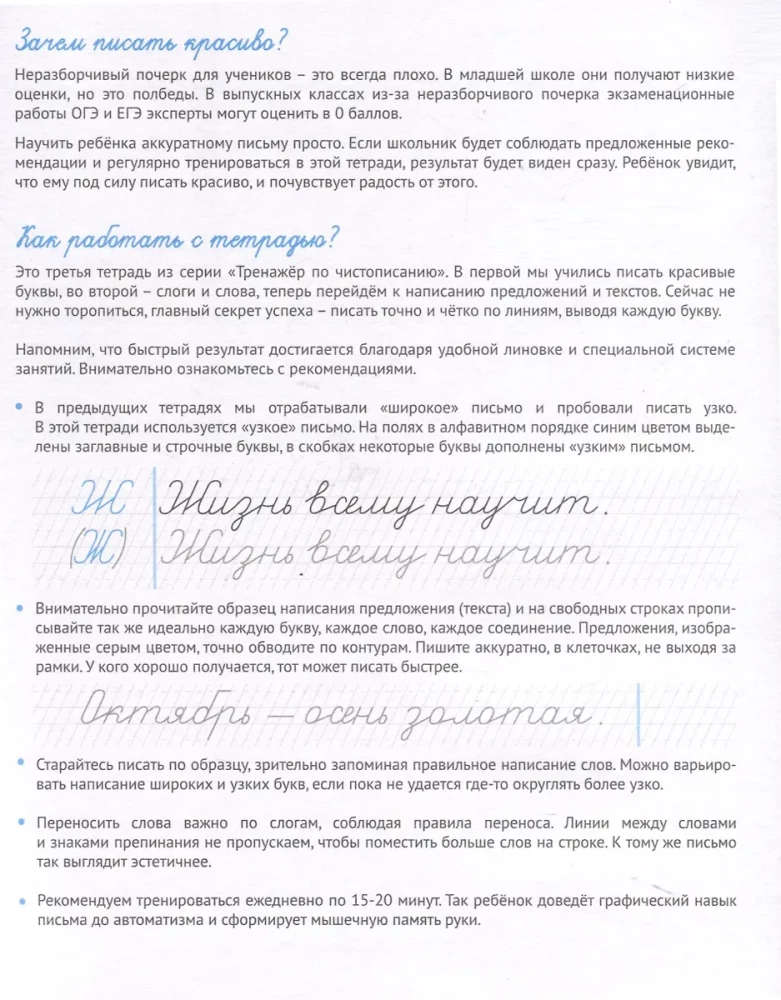 Зачем писать красиво?
Неразборчивый почерк для учеников – это всегда плохо. В младшей школе они получают низкие
оценки, но это полбеды. В выпускных классах из-за неразборчивого почерка экзаменационные
работы ОГЭ и ЕГЭ эксперты могут оценить в 0 баллов.
Научить ребёнка аккуратному письму просто. Если школьник будет соблюдать предложенные реко-
мендации и регулярно тренироваться в этой тетради, результат будет виден сразу. Ребёнок увидит,
что ему под силу писать красиво, и почувствует радость от этого.
Как работать с тетрадью?
Это третья тетрадь из серии «Тренажёр по чистописанию». В первой мы учились писать красивые
буквы, во второй – слоги и слова, теперь перейдём к написанию предложений и текстов. Сейчас не
нужно торопиться, главный секрет успеха – писать точно и чётко по линиям, выводя каждую букву.
Напомним, что быстрый результат достигается благодаря удобной линовке и специальной системе
занятий. Внимательно ознакомьтесь с рекомендациями.
• В предыдущих тетрадях мы отрабатывали «широкое» письмо и пробовали писать узко.
В этой тетради используется «узкое» письмо. На полях в алфавитном порядке синим цветом выде-
лены заглавные и строчные буквы, в скобках некоторые буквы дополнены «узким» письмом.
Ж Жизнь всему научит.
(Ж) Жизнь всему научит.
• Внимательно прочитайте образец написания предложения (текста) и на свободных строках пропи-
сывайте так же идеально каждую букву, каждое слово, каждое соединение. Предложения, изобра-
женные серым цветом, точно обводите по контурам. Пишите аккуратно, в клеточках, не выходя за
рамки. У кого хорошо получается, тот может писать быстрее.
Октябрь — осень золотая.
• Старайтесь писать по образцу, зрительно запоминая правильное написание слов. Можно варьиро-
вать написание широких и узких букв, если пока не удается где-то округлять более узко.
• Переносить слова важно по слогам, соблюдая правила переноса. Линии между словами
и знаками препинания не пропускаем, чтобы поместить больше слов на строке. К тому же письмо
так выглядит эстетичнее.
• Рекомендуем тренироваться ежедневно по 15-20 минут. Так ребёнок доведёт графический навык
письма до автоматизма и сформирует мышечную память руки.